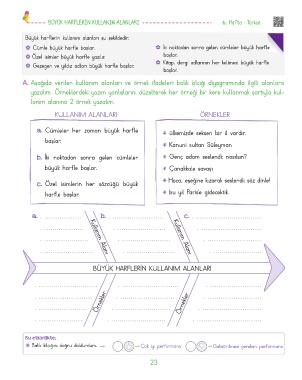 BÜYÜK HARFLERİN KULLANIM ALANLARI
6. MeTto - Türkçe
Büyük harflerin kullanım alanları şu şekildedir:
Cümle büyük harfle başlar.
Özel isimler büyük harfle yazılır.
Gezegen ve yıldız adları büyük harfle başlar.
İki noktadan sonra gelen cümleler büyük harfle başlar.
Kitap, dergi adlarının her kelimesi büyük harfle başlar.
A. Aşağıda verilen kullanım alanları ve örnek ifadeleri balık kılçığı diyagramında ilgili alanlara
yazalım. Örneklerdeki yazım yanlışlarını düzelterek her örneği bir kere kullanmak şartıyla kul-
lanım alanına 2 örnek yazalım.
KULLANIM ALANLARI
a. Cümleler her zaman büyük harfle
başlar.
b. İki noktadan sonra gelen cümleler
büyük harfle başlar.
c. Özel isimlerin her sözcüğü büyük
harfle başlar.
ÖRNEKLER
ülkemizde seksen bir il vardır.
Kanuni sultan Süleyman
Genç adam seslendi: nasılsın?
Çanakkale savaşı
Hoca, eşeğine kızarak seslendi: söz dinle!
bu yıl Paris'e gidecektik.
a.
b.
c.
Kullanım Alanı
Kullanım Alanı
BÜYÜK HARFLERİN KULLANIM ALANLARI
Örnekler
Örnekler
Bu etkinlikte;
Balık kılçığını doğru doldurdum.
Çok iyi performans
Geliştirilmesi gereken performans
23